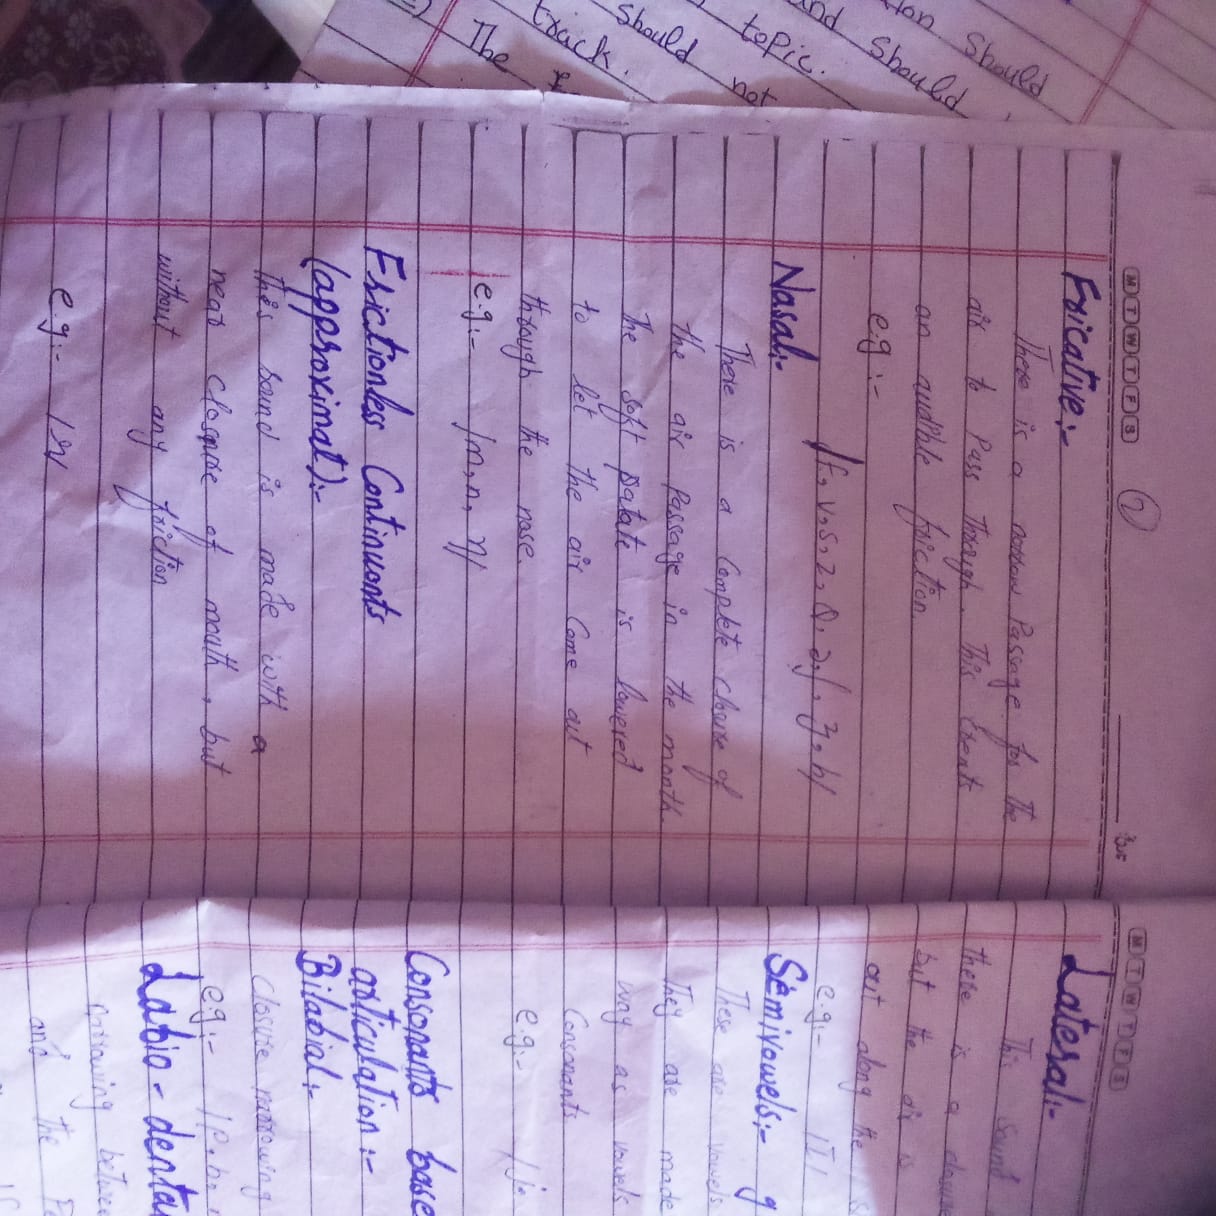 should
and should
topic.
should not
track.
The
M T W T F S
2
Fricative:-
There is a narrow Passage for the
air to Pass through. This
an audible friction.
e.g:-
/f, v, s, z, θ, ð, ʃ, ʒ, h/
Nasal:-
There is a Complete closure of
the air Passage in the mouth.
The soft palate is lowered
to let the air Come out
through the nose.
e.g:- /m, n, ŋ/
Frictionless Continuants
(approximat):-
This sound is made with a
near closure of mouth, but
without any friction
e.g:- /r/
M T W T F S
Lateral:-
This sound
there is a closure
but the air is
out along the
e.g:- /l/
Semivowels:-
These are vowels
They are made
way as vowels
Consonants
e.g:- /j
Consonants base
articulation:-
Bilabial:-
Closure narrowing
e.g:- /p, b,
Labio-denta
narrowing betwee
and the